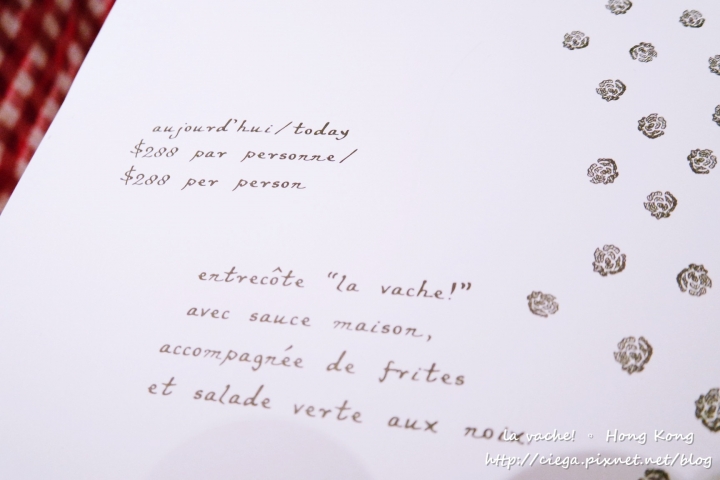 aujourd'hui/today
$288 par personne/
$288 per person
entrecôte "la vache!"
avec sauce maison,
accompagnée de frites
et salade verte aux noix,
la vache! 。 Hong Kong
http://ciega.pixnet.net/blog